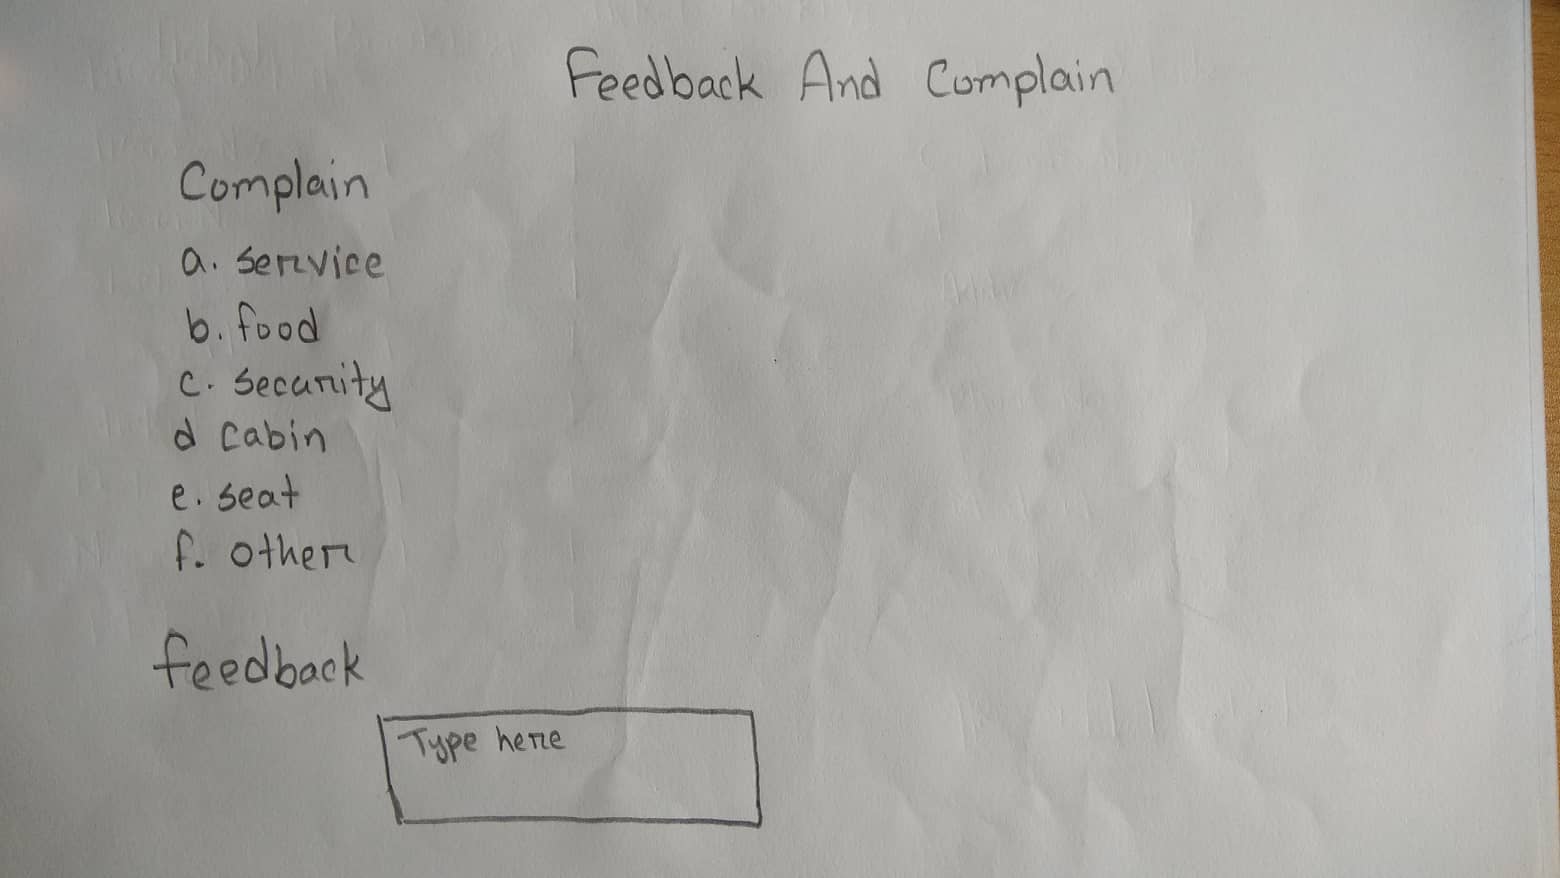 Feedback And Complain
Complain
a. service
b. food
c. security
d cabin
e. seat
f. other
feedback
Type here